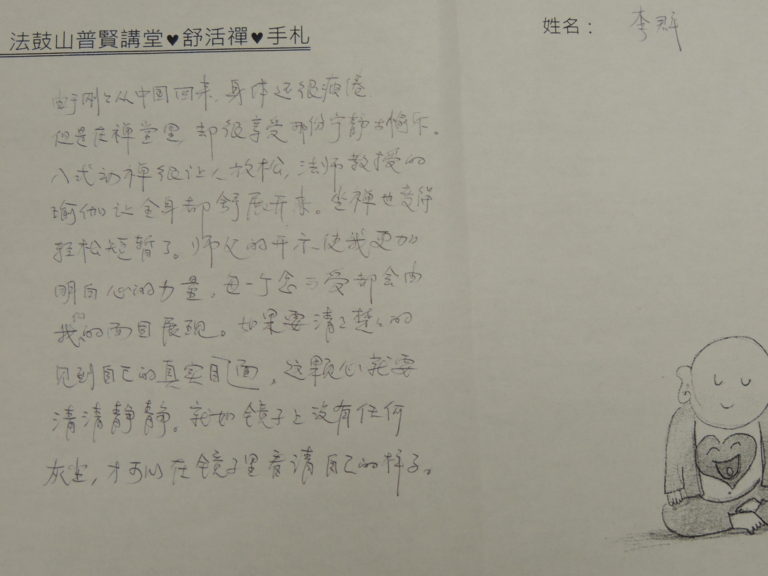 法鼓山普賢講堂♥舒活禪♥手札
姓名：
李群
由于刚刚从中国回来，身体还很疲倦，
但是在禅堂里，却很享受那份宁静与愉乐。
八式动禅很让人放松，法师教授的
瑜伽让全身都舒展开来。坐禅也变得
轻松短暂了。师父的开示使我更加
明白心的力量，每一个念
我们的面目展现。如果要清清楚楚的
见到自己的真实面，这颗心就要
清清静静。就如镜子上没有任何
灰尘，才可以在镜子里看清自己的样子。